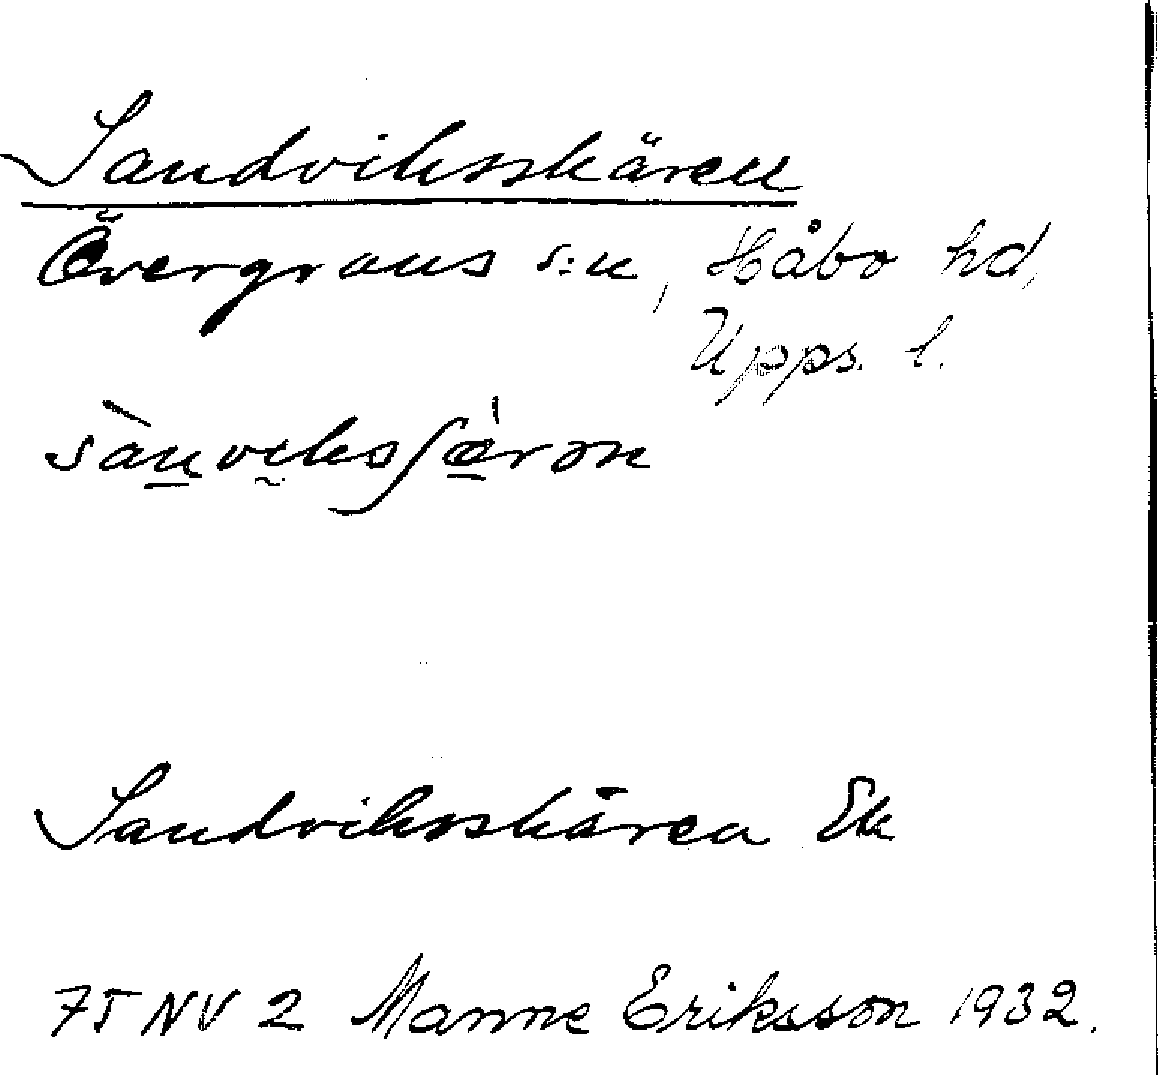 Sandviksskären
Övergrans s:n, Håbo hd,
Upps. l.
sànviksʃæ̀ron
Sandviksskären Ek
75 NV 2 Manne Eriksson 1932.